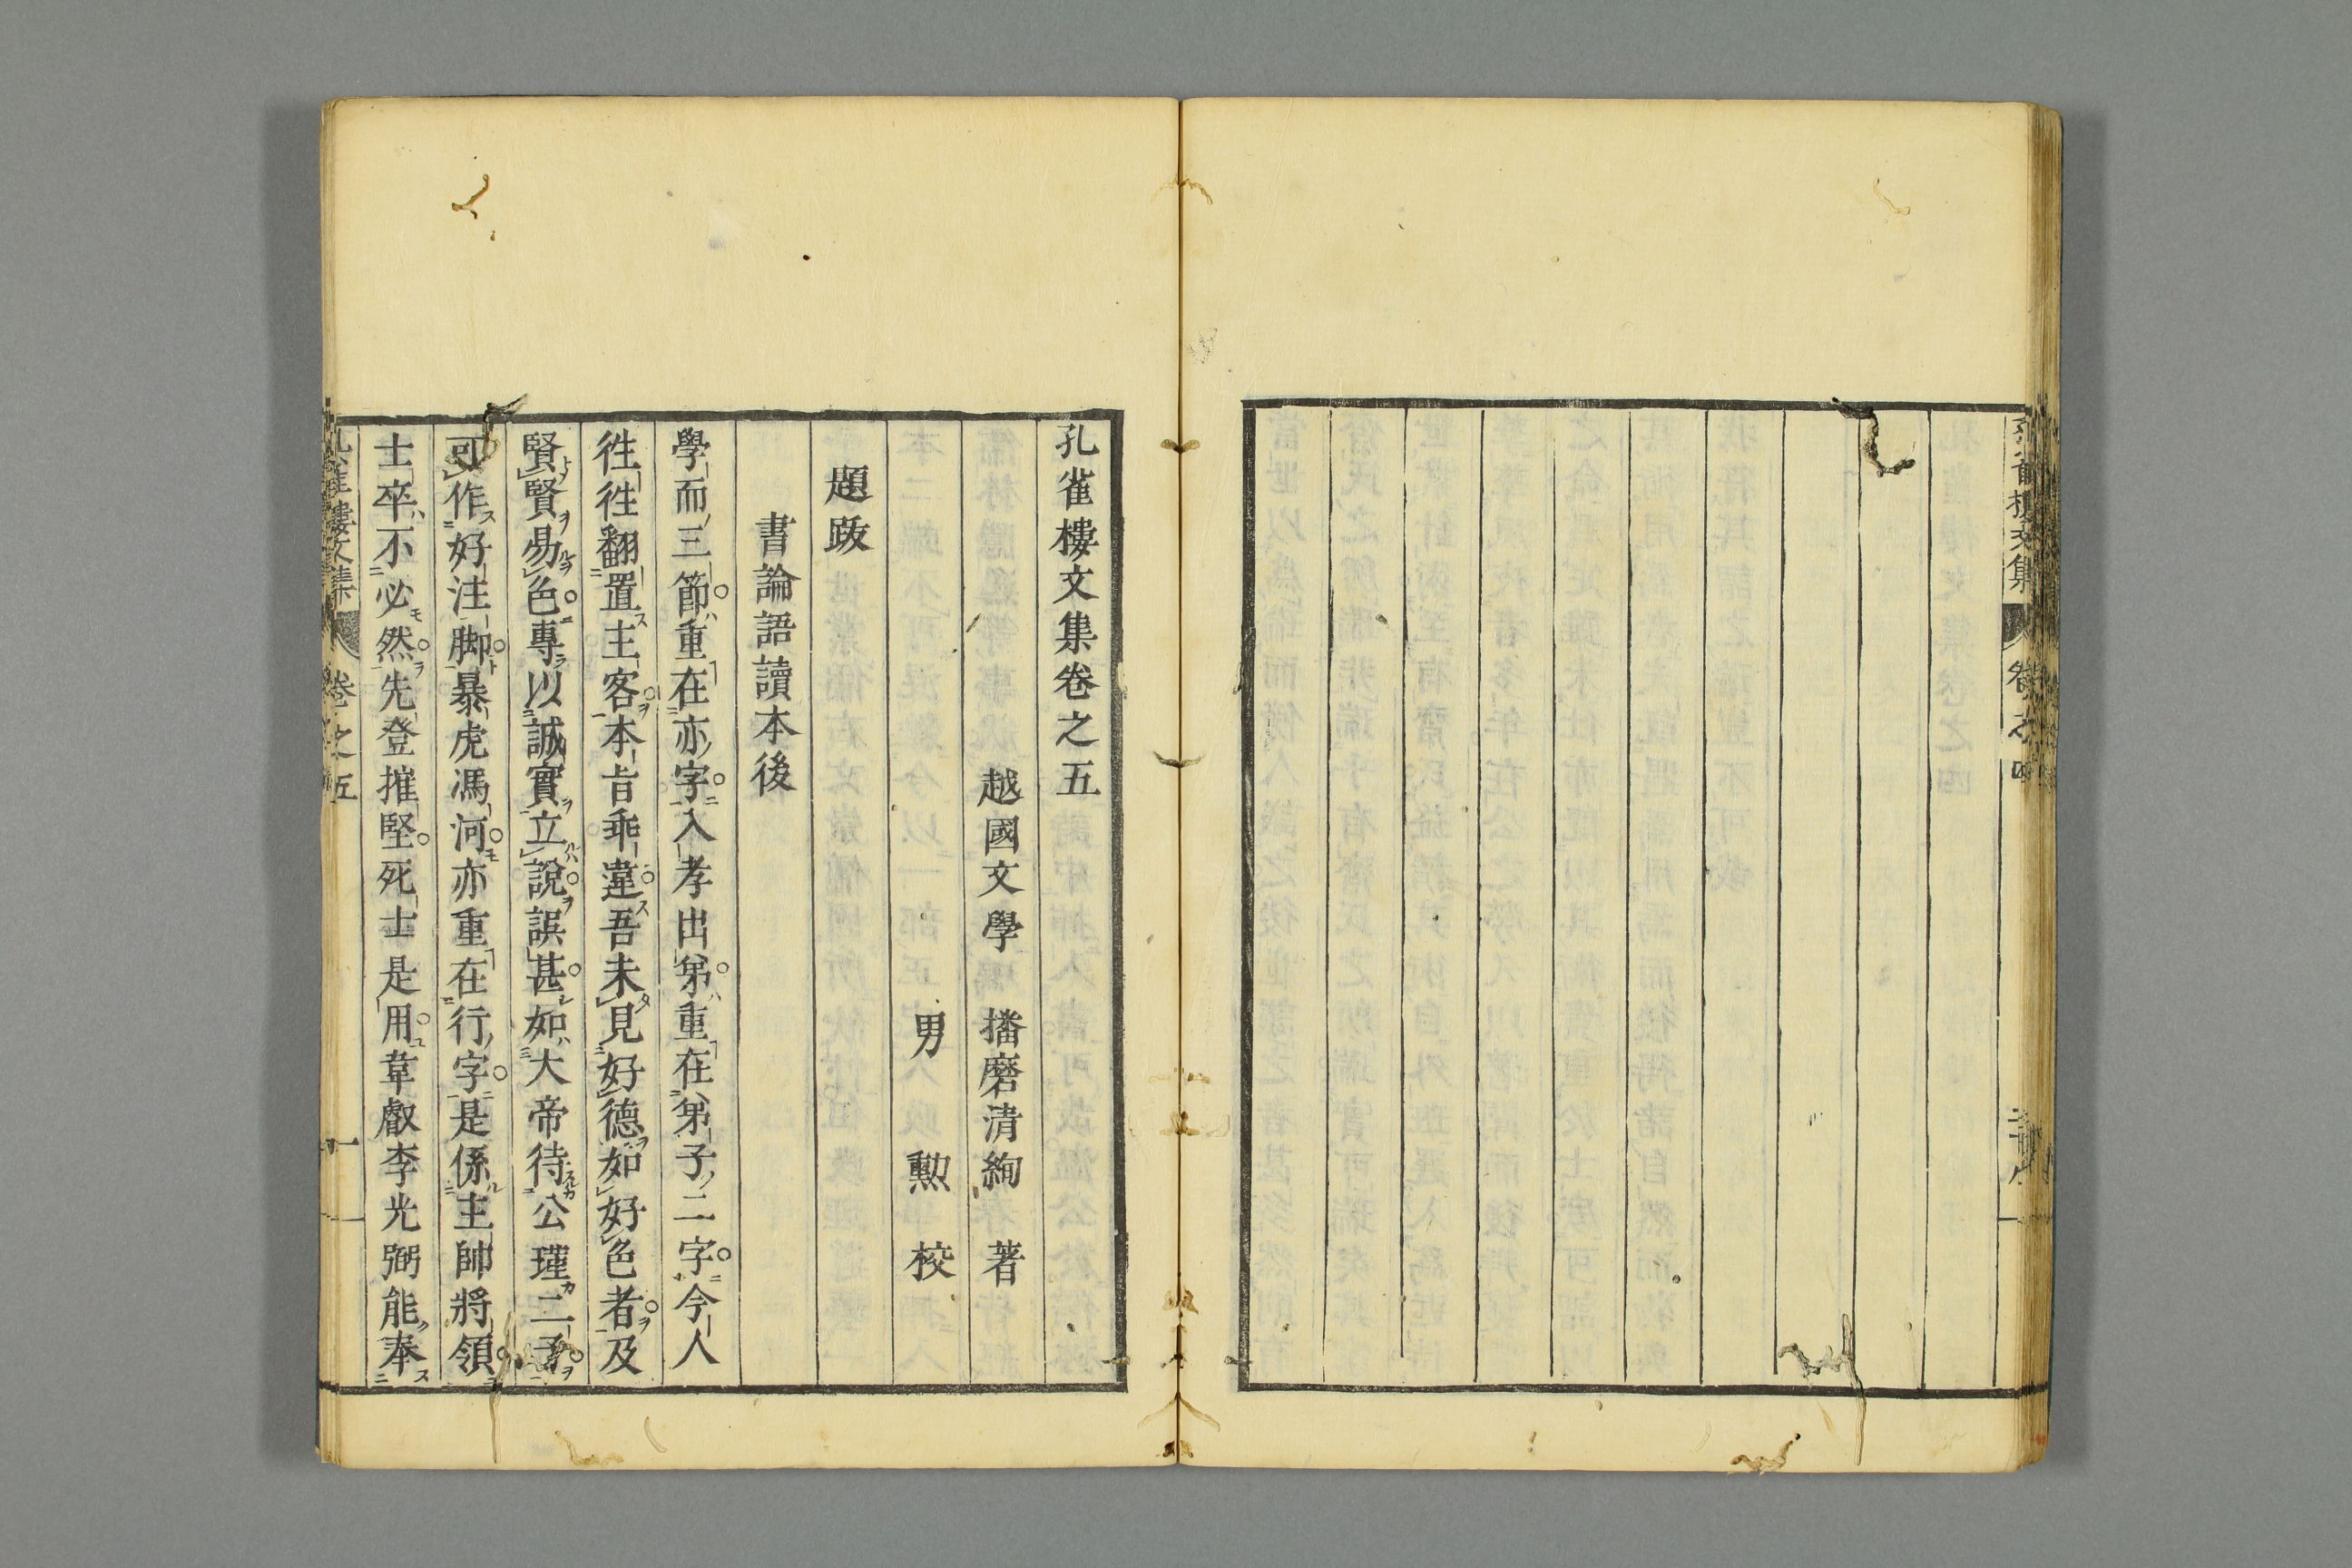 孔雀樓文集
卷之四
孔雀樓文集卷之五
越國文學　播磨清絢　著
男　勲　校
題䟦
書論語讀本後
學而三節重在亦字入孝出弟重在弟子二字今人
徃徃翻置主客本旨乖違吾未見好德如好色者及
賢賢易色專以誠實立說誤甚如大帝待公瑾二子
可作好注脚暴虎馮河亦重在行字是係主帥將領
士卒不必然先登摧堅死士是用韋叡李光弼能奉
孔雀樓文集
卷之五
一